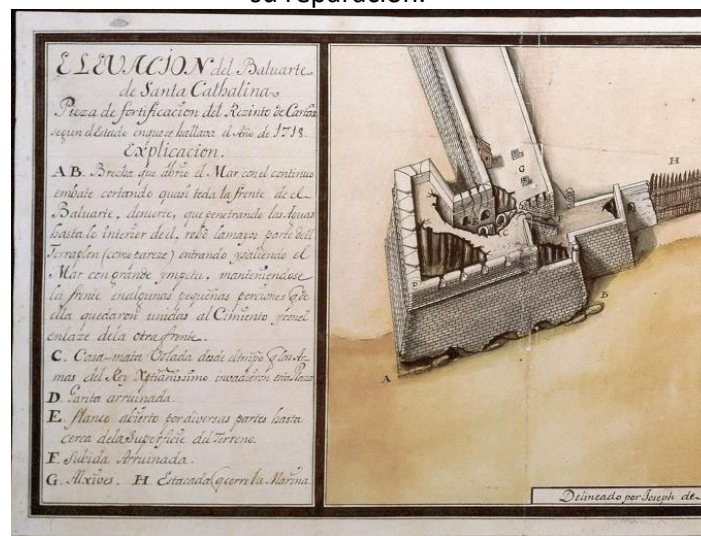 su reparación.
ELEVACION del Baluarte
de Santa Cathalina
Pieza de fortificacion del Rezinto de Cartaa
segun el estado en que se hallava el Año de 1718.
Explicacion.
AB. Brecha que abrio el Mar con el continuo
embate cortando quasi toda la frente de el
Baluarte, de suerte, que penetrando las Aguas
hasta lo interior de el, robò la mayor parte del
Terraplen (como pareze) entrando y saliendo el
Mar con grande ympetu, manteniendose
la frente en algunas pequeñas porciones q de
ella quedaron unidas al Cimiento y con el
enlaze de la otra frente.
C. Casa-mata Volada desde el tiempo q las Ar-
mas del Rey Xptianissimo invadieron esta Plaza
D. Garita arruinada.
E. flanco abierto por diversas partes hasta
cerca de la Superficie del Terreno.
F. Subida Arruinada.
G. Alxives. H. Estacada q corre la Marina.
H
G
C
D
B
A
Delineado por Joseph de